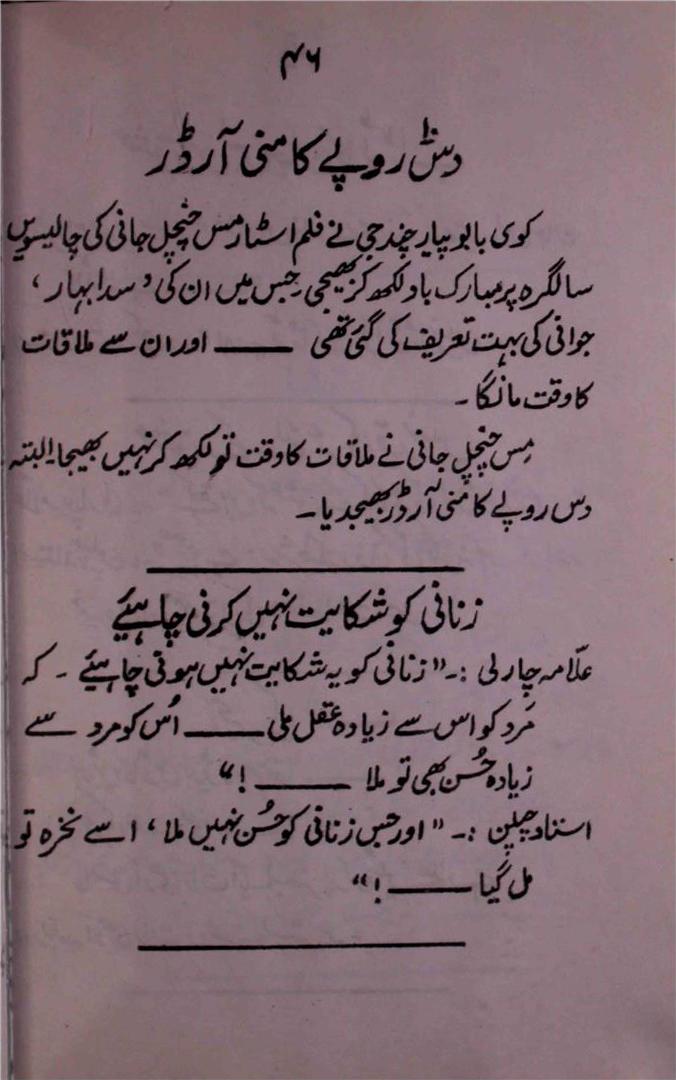 ۴۶
دس روپے کا منی آرڈر
کوی بابو پیارے چندجی نے فلم اسٹار مس چنچل جانی کی چالیسویں
سالگرہ پر مبارک باد لکھ کر بھیجی جس میں ان کی ’سدا بہار‘
جوانی کی بہت تعریف کی گئی تھی —— اور ان سے ملاقات
کا وقت مانگا۔
مِس چنچل جانی نے ملاقات کا وقت تو لکھ کر نہیں بھیجا البتہ
دس روپے کا منی آرڈر بھیجدیا۔
زنانی کو شکایت نہیں کرنی چاہیئے
علّامہ چارلی :۔ “زنانی کو یہ شکایت نہیں ہوتی چاہیئے ۔ کہ
مَرد کو اس سے زیادہ عقل ملی —— اُس کو مرد سے
زیادہ حُسن بھی تو ملا —— !”
استاد چپلن :۔ “اور جس زنانی کو حُسن نہیں ملا، اسے نخرہ تو
مل گیا —— !”